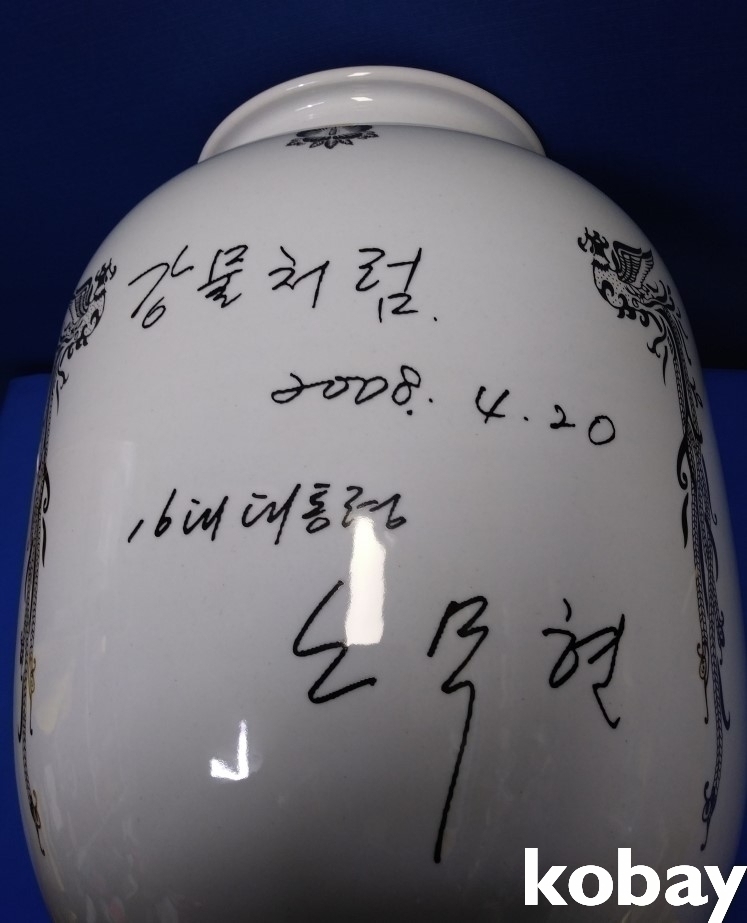 강물처럼.
2008. 4. 20
16대 대통령
노무현
kobay